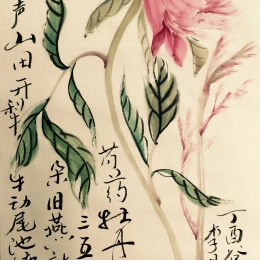 丁酉谷
李
芍药牡丹
三五
朵旧燕
声山田开犁牛动尾池